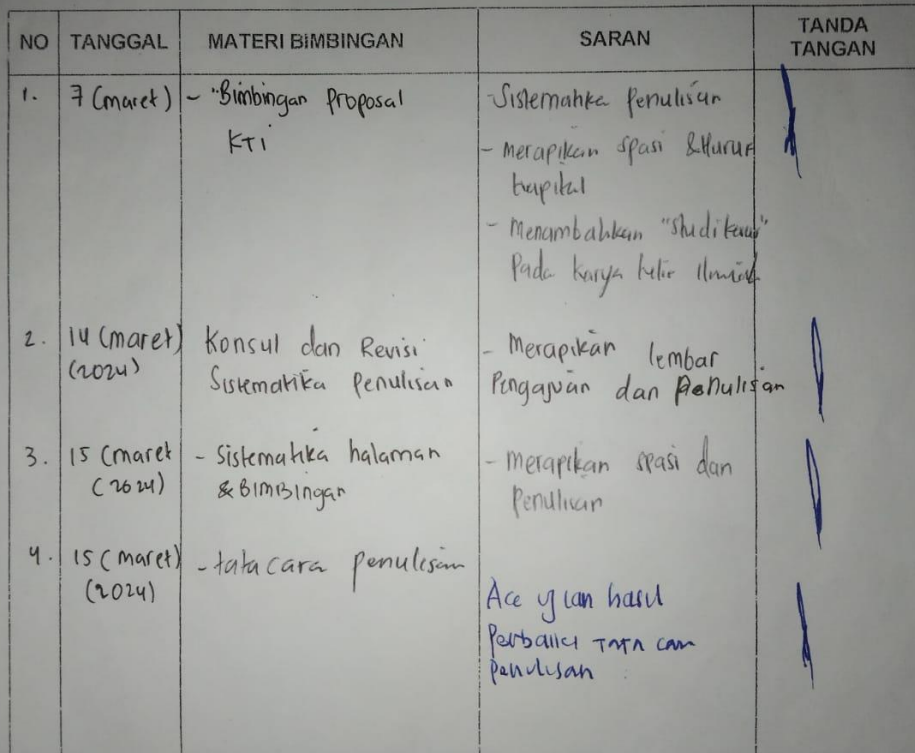 NO TANGGAL MATERI BIMBINGAN SARAN TANDA TANGAN
1. 7 (maret) - "Bimbingan Proposal
KTi
- Sistematika Penulisan
- Merapikan spasi & Huruf
kapital
- Menambahkan "studi kasus"
Pada karya tulis Ilmiah
2. 14 (maret)
(2024)
Konsul dan Revisi
Sistematika Penulisan
- Merapikan lembar
Pengajuan dan Penulisan
3. 15 (maret
(2024)
- Sistematika halaman
& BIMBingan
- Merapikan spasi dan
Penulisan
4. 15 (maret)
(2024)
- tata cara penulisan
Acc ujian hasil
Perbaiki TATA cara
penulisan